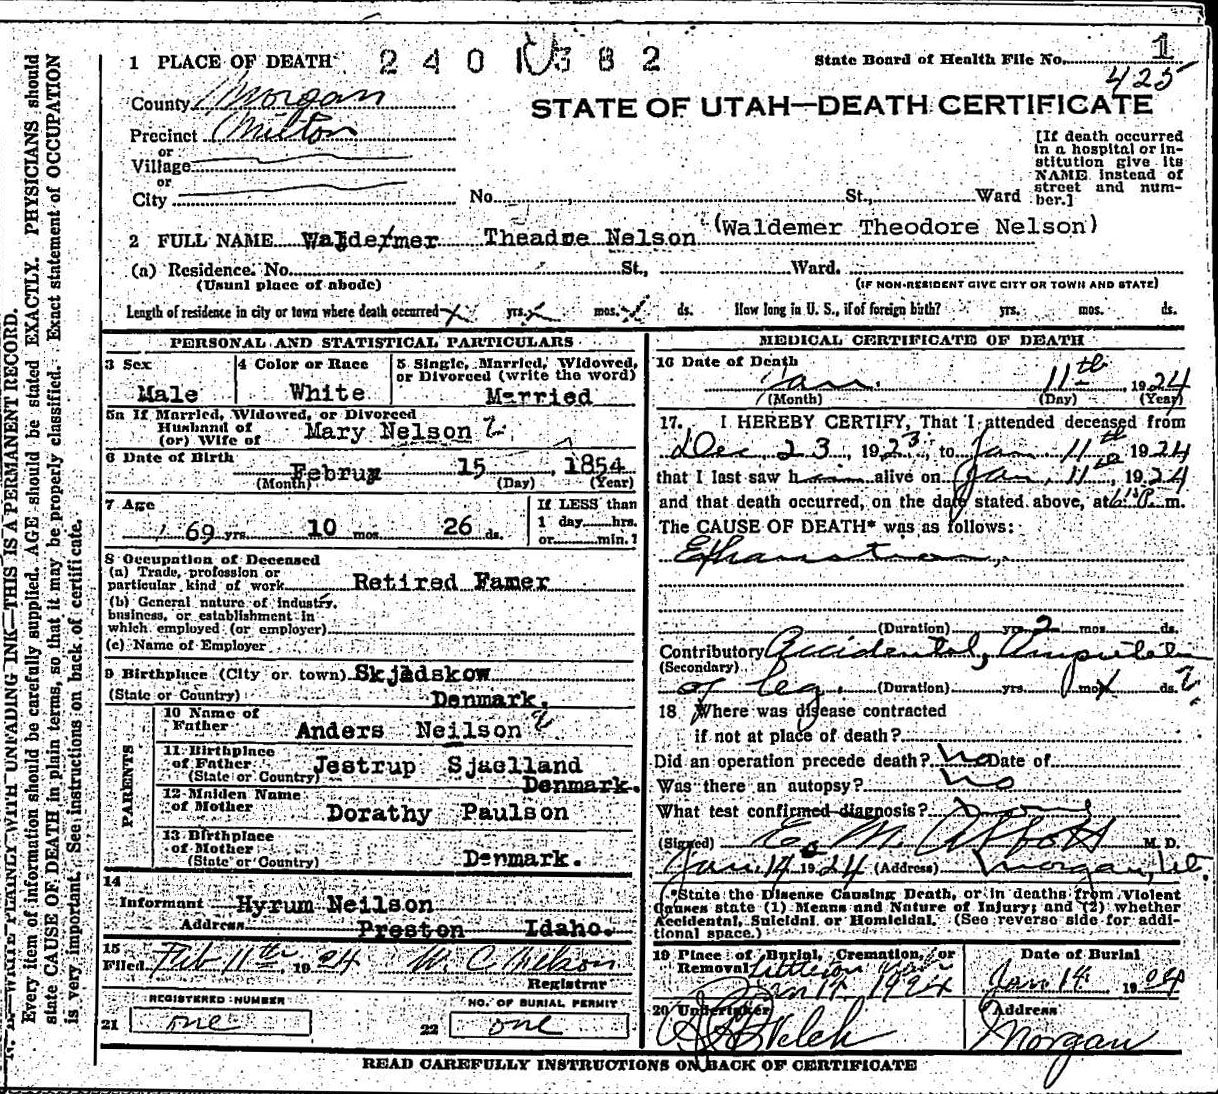 1 PLACE OF DEATH 2401382 State Board of Health File No. 1
425
County Morgan
STATE OF UTAH—DEATH CERTIFICATE
Precinct Milton
or
Village
or
City
No. St., Ward
[If death occurred
in a hospital or in-
stitution give its
NAME instead of
street and num-
ber.]
2 FULL NAME Waldermer Theadre Nelson (Waldemer Theodore Nelson)
(a) Residence. No. St., Ward.
(Usual place of abode) (IF NON-RESIDENT GIVE CITY OR TOWN AND STATE)
Length of residence in city or town where death occurred x yrs. x mos. x ds. How long in U. S., if of foreign birth? yrs. mos. ds.
PERSONAL AND STATISTICAL PARTICULARS
3 Sex
Male
4 Color or Race
White
5 Single, Married, Widowed,
or Divorced (write the word)
Married
5a If Married, Widowed, or Divorced
Husband of
(or) Wife of Mary Nelson
6 Date of Birth
Februry 15, 1854
(Month) (Day) (Year)
7 Age
69 yrs. 10 mos. 26 ds.
If LESS than
1 day hrs.
or min.?
8 Occupation of Deceased
(a) Trade, profession or
particular kind of work Retired Famer
(b) General nature of industry,
business, or establishment in
which employed (or employer)
(c) Name of Employer
9 Birthplace (City or town) Skjadskow
(State or Country) Denmark.
PARENTS
10 Name of
Father Anders Neilson
11 Birthplace
of Father Jestrup Sjaelland
(State or Country) Denmark.
12 Maiden Name
of Mother Dorathy Paulson
13 Birthplace
of Mother
(State or Country) Denmark.
14
Informant Hyrum Neilson
Address Preston Idaho.
15
Filed Feb 11th, 1924 W. C. Nelson
Registrar
REGISTERED NUMBER
21 one
NO. OF BURIAL PERMIT
22 one
MEDICAL CERTIFICATE OF DEATH
16 Date of Death
Jan. 11th, 1924
(Month) (Day) (Year)
17. I HEREBY CERTIFY, That I attended deceased from
Dec 23, 1923, to Jan 11th 1924
that I last saw him alive on Jan, 11th, 1924
and that death occurred, on the date stated above, at m.
The CAUSE OF DEATH* was as follows:
Exhaustion,
(Duration) yrs. 2 mos. ds.
Contributory Accidental, Amputation
(Secondary)
of leg. (Duration) yrs. mos. ds.
18 Where was disease contracted
if not at place of death?
Did an operation precede death? No Date of
Was there an autopsy? no
What test confirmed diagnosis?
(Signed) E. M. Abbott M. D.
Jan. 14 1924 (Address) Morgan, Ut.
*State the Disease Causing Death, or in deaths from Violent
Causes state (1) Means and Nature of Injury; and (2) whether
Accidental, Suicidal or Homicidal. (See reverse side for addi-
tional space.)
19 Place of Burial, Cremation, or
Removal Littleton
Jan 14 1924
Date of Burial
Jan 14 1924
20 Undertaker
Welch
Address
Morgan
READ CAREFULLY INSTRUCTIONS ON BACK OF CERTIFICATE
WRITE PLAINLY WITH UNFADING INK—THIS IS A PERMANENT RECORD.
Every item of information should be carefully supplied. AGE should be stated EXACTLY. PHYSICIANS should
state CAUSE OF DEATH in plain terms, so that it may be properly classified. Exact statement of OCCUPATION
is very important. See instructions on back of certificate.